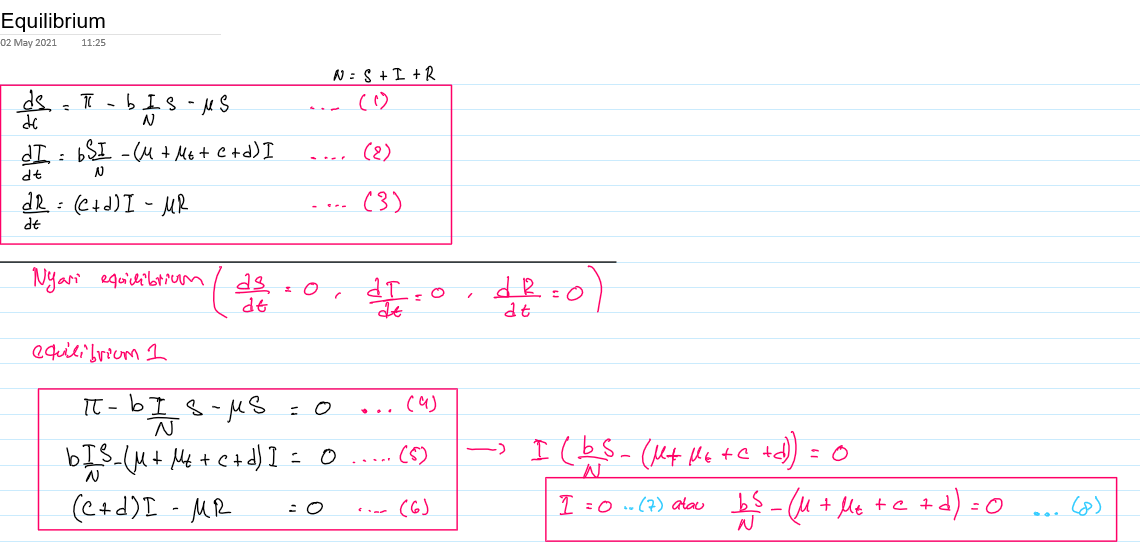 Equilibrium
02 May 2021 11:25
N = S + I + R
dS/dt = π - b I/N S - μS .... (1)
dI/dt = b SI/N - (μ + μt + c + d) I .... (2)
dR/dt = (c+d) I - μR .... (3)
Nyari equilibrium ( dS/dt = 0 , dI/dt = 0 , dR/dt = 0 )
equilibrium 1
π - b I/N S - μS = 0 ... (4)
b IS/N - (μ + μt + c + d) I = 0 ..... (5) → I ( bS/N - (μ + μt + c + d)) = 0
(c+d) I - μR = 0 .... (6)
I = 0 .. (7) atau bS/N - (μ + μt + c + d) = 0 ... (8)